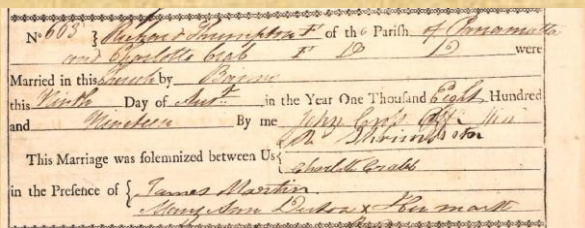 No 603 } Richard Frumpton F of the Parish of Parramatta
and Charlotte Crab F Do Do were
Married in this Church by Banns
this Ninth Day of Augt in the Year One Thousand Eight Hundred
and Nineteen By me John Cross
This Marriage was solemnized between Us {
Charlotte Crabb
in the Presence of { James Martin
Mary Ann x Her mark